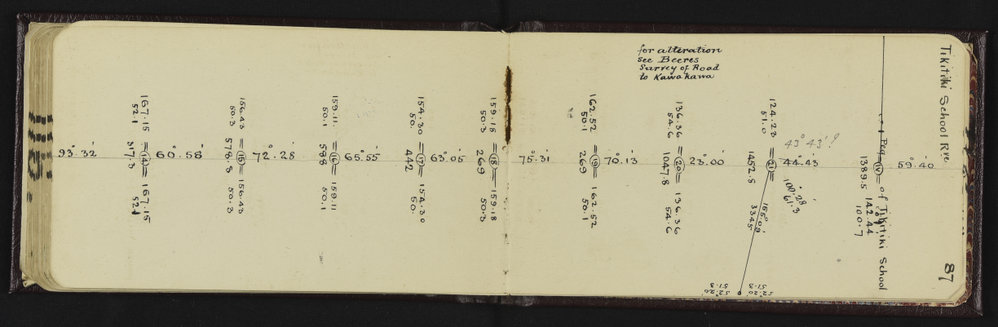 for alteration
see Beeres
Survey of Road
to Kawakawa
Tikitiki School Rte
87
167.15
52.1
=(14)=
317.3
167.15
52.1
93° 32'
60° 58'
156.43
50.3
=(15)=
578.8
156.43
50.3
72° 28'
159.11
50.1
=(16)=
588
159.11
50.1
65° 55'
154.30
50.
=(17)=
442
154.30
50.
63° 05'
159.18
50.3
=(18)=
269
159.18
50.3
75° 31'
162.52
50.1
=(19)=
269
162.52
50.1
70° 13'
136.36
54.6
=(20)=
1047.8
136.36
54.6
23° 00'
124.23
51.0
(21)=
1452.5
43° 43'!
44° 43'
100° 28'
61.3
155° 09'
334.5
52.20
51.3
52.20
51.3
Peg (IV) of Tikitiki School
1389.5
142.44
100.7
59° 40'